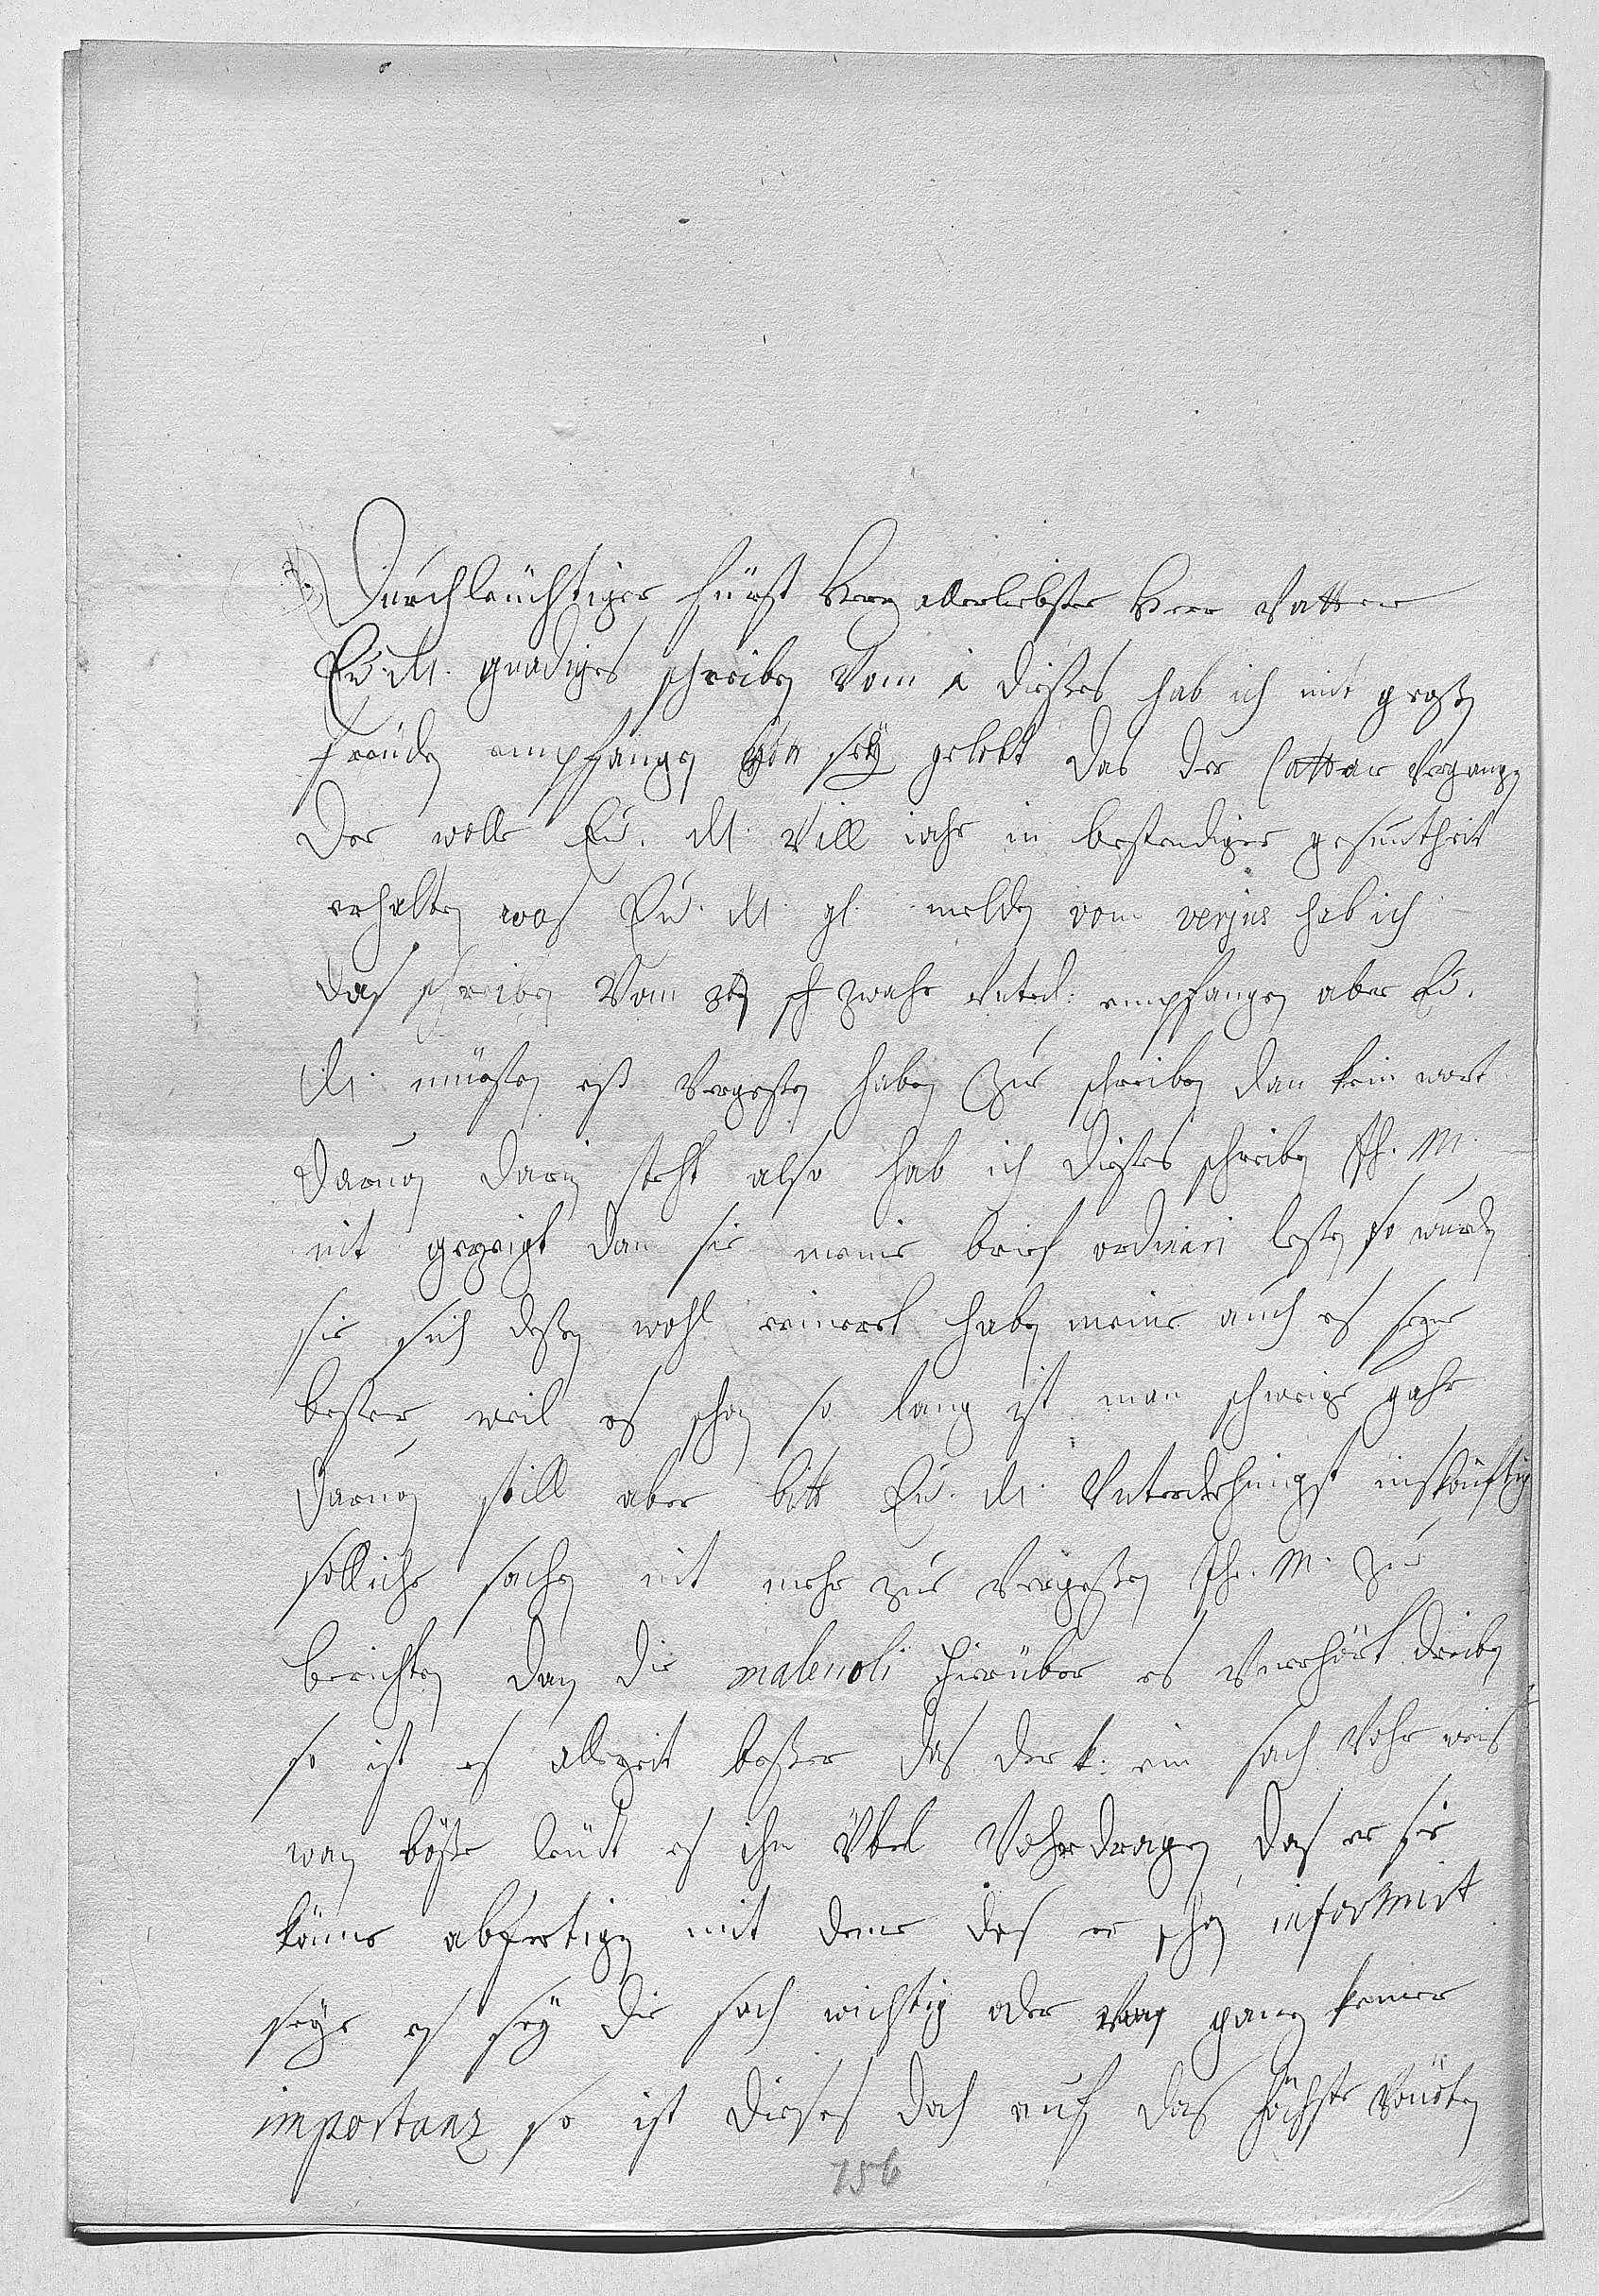 Durchleüchtiger fürst Herr allerliebster Herr Vatter
Eü. dl. gnadiges schreiben Vom 1 dießes hab ich mit großen
freüden empfangen gott seÿ gelobt das der Cattar Vergangen
der wolle Eü. dl. Vill iahr in bestendiger gesuntheit
erhalten was Eü. dl. gl. melden vom verjus hab ich
das schreiben Vom zwahr empfangen aber Eü.
dl. müeßen eß Vergeßen haben zu schreiben dan kein wort
daruon darin steht also hab ich dießes schreiben Ih. M.
nit gezeigt dan sie meine brief ordinari leßen so wurden
sie sich deßen wohl erinert haben meine auch es seye
besser weil es schon so lang ist man schweige gahr
daruon still aber bitt Eü. dl. Vnterdehnigst inskünftig
solliche sachen nit mehr zue Vergeßen Ih. M. zu
berichten dan die malevoli hierüber es Vnerhört dreiben
so ist es allezeit beßer das der k. ein sach Vohr weis
wan böße leüt es ihm Vbel Vohrdragen das er sie
könne abfertigen mit deme das er schon informirt
seÿe es seÿ die sach wichtig oder von ganz keiner
importanz so ist dieses doch auf das höchste Vonöten
156